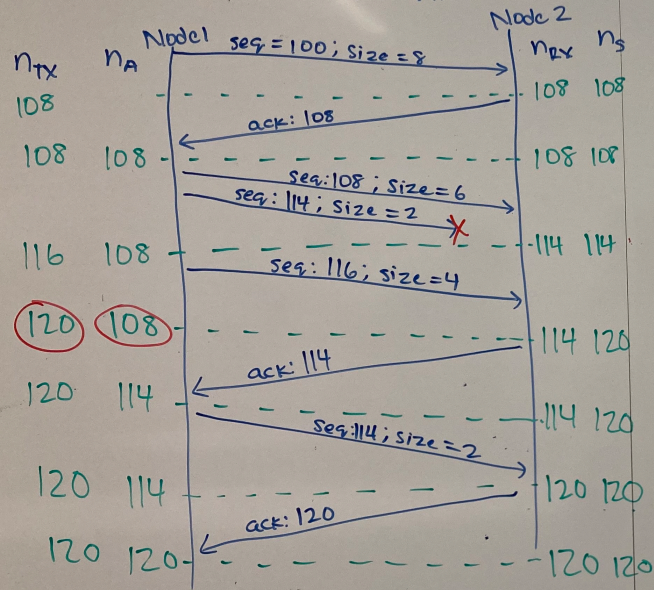 Node1 Node2
n_TX n_A seq = 100; size = 8 n_RX n_S
108 108 108
ack: 108
108 108 108 108
seq: 108; size = 6
seq: 114; size = 2 X
116 108 114 114
seq: 116; size = 4
120 108 114 120
ack: 114
120 114 114 120
seq: 114; size = 2
120 114 120 120
ack: 120
120 120 120 120